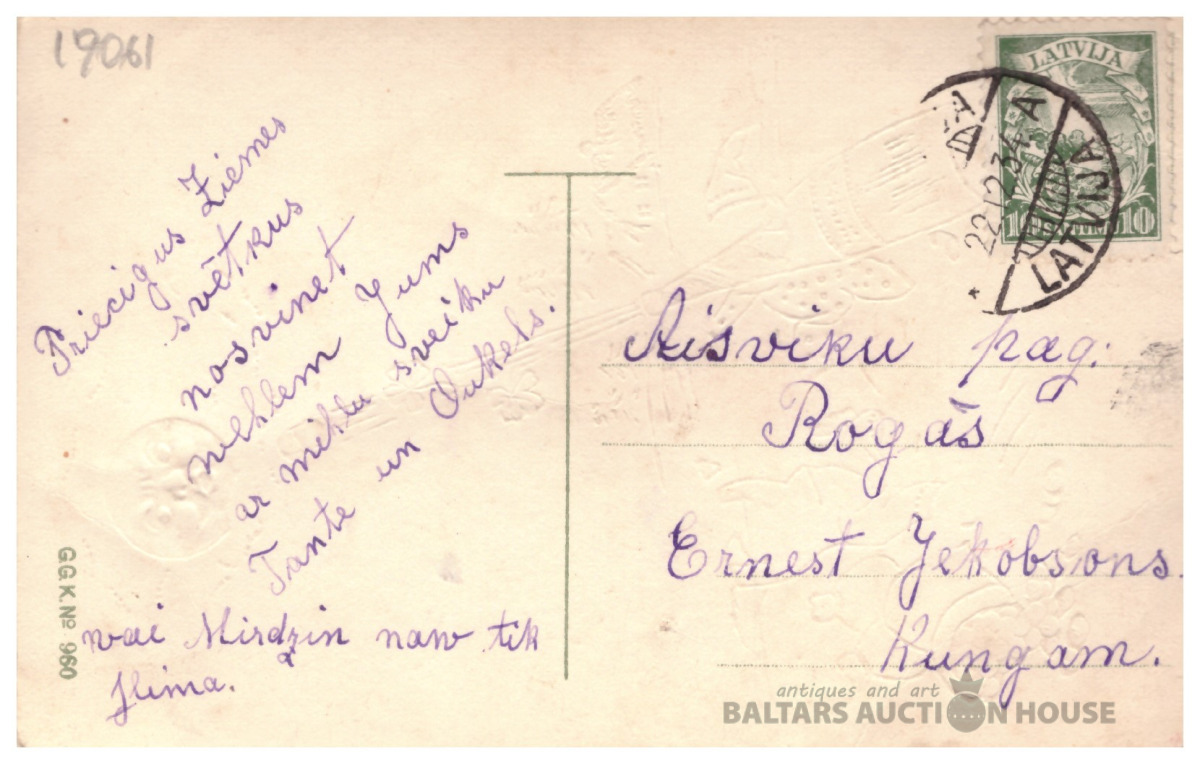 19061
Priecigus Ziemes
svētkus
nosvinet
wehlem Jums
ar mihlu sveiku
Tante un Onkels.
wai Mirdzin naw tik
slima.
G.G.K. Nº 960
LATVIJA
10 10
22 12 34 A
LATVIJA
Aisviku pag:
Rogās
Ernest Jekobsons.
Kungam.
antiques and art
BALTARS AUCTION HOUSE